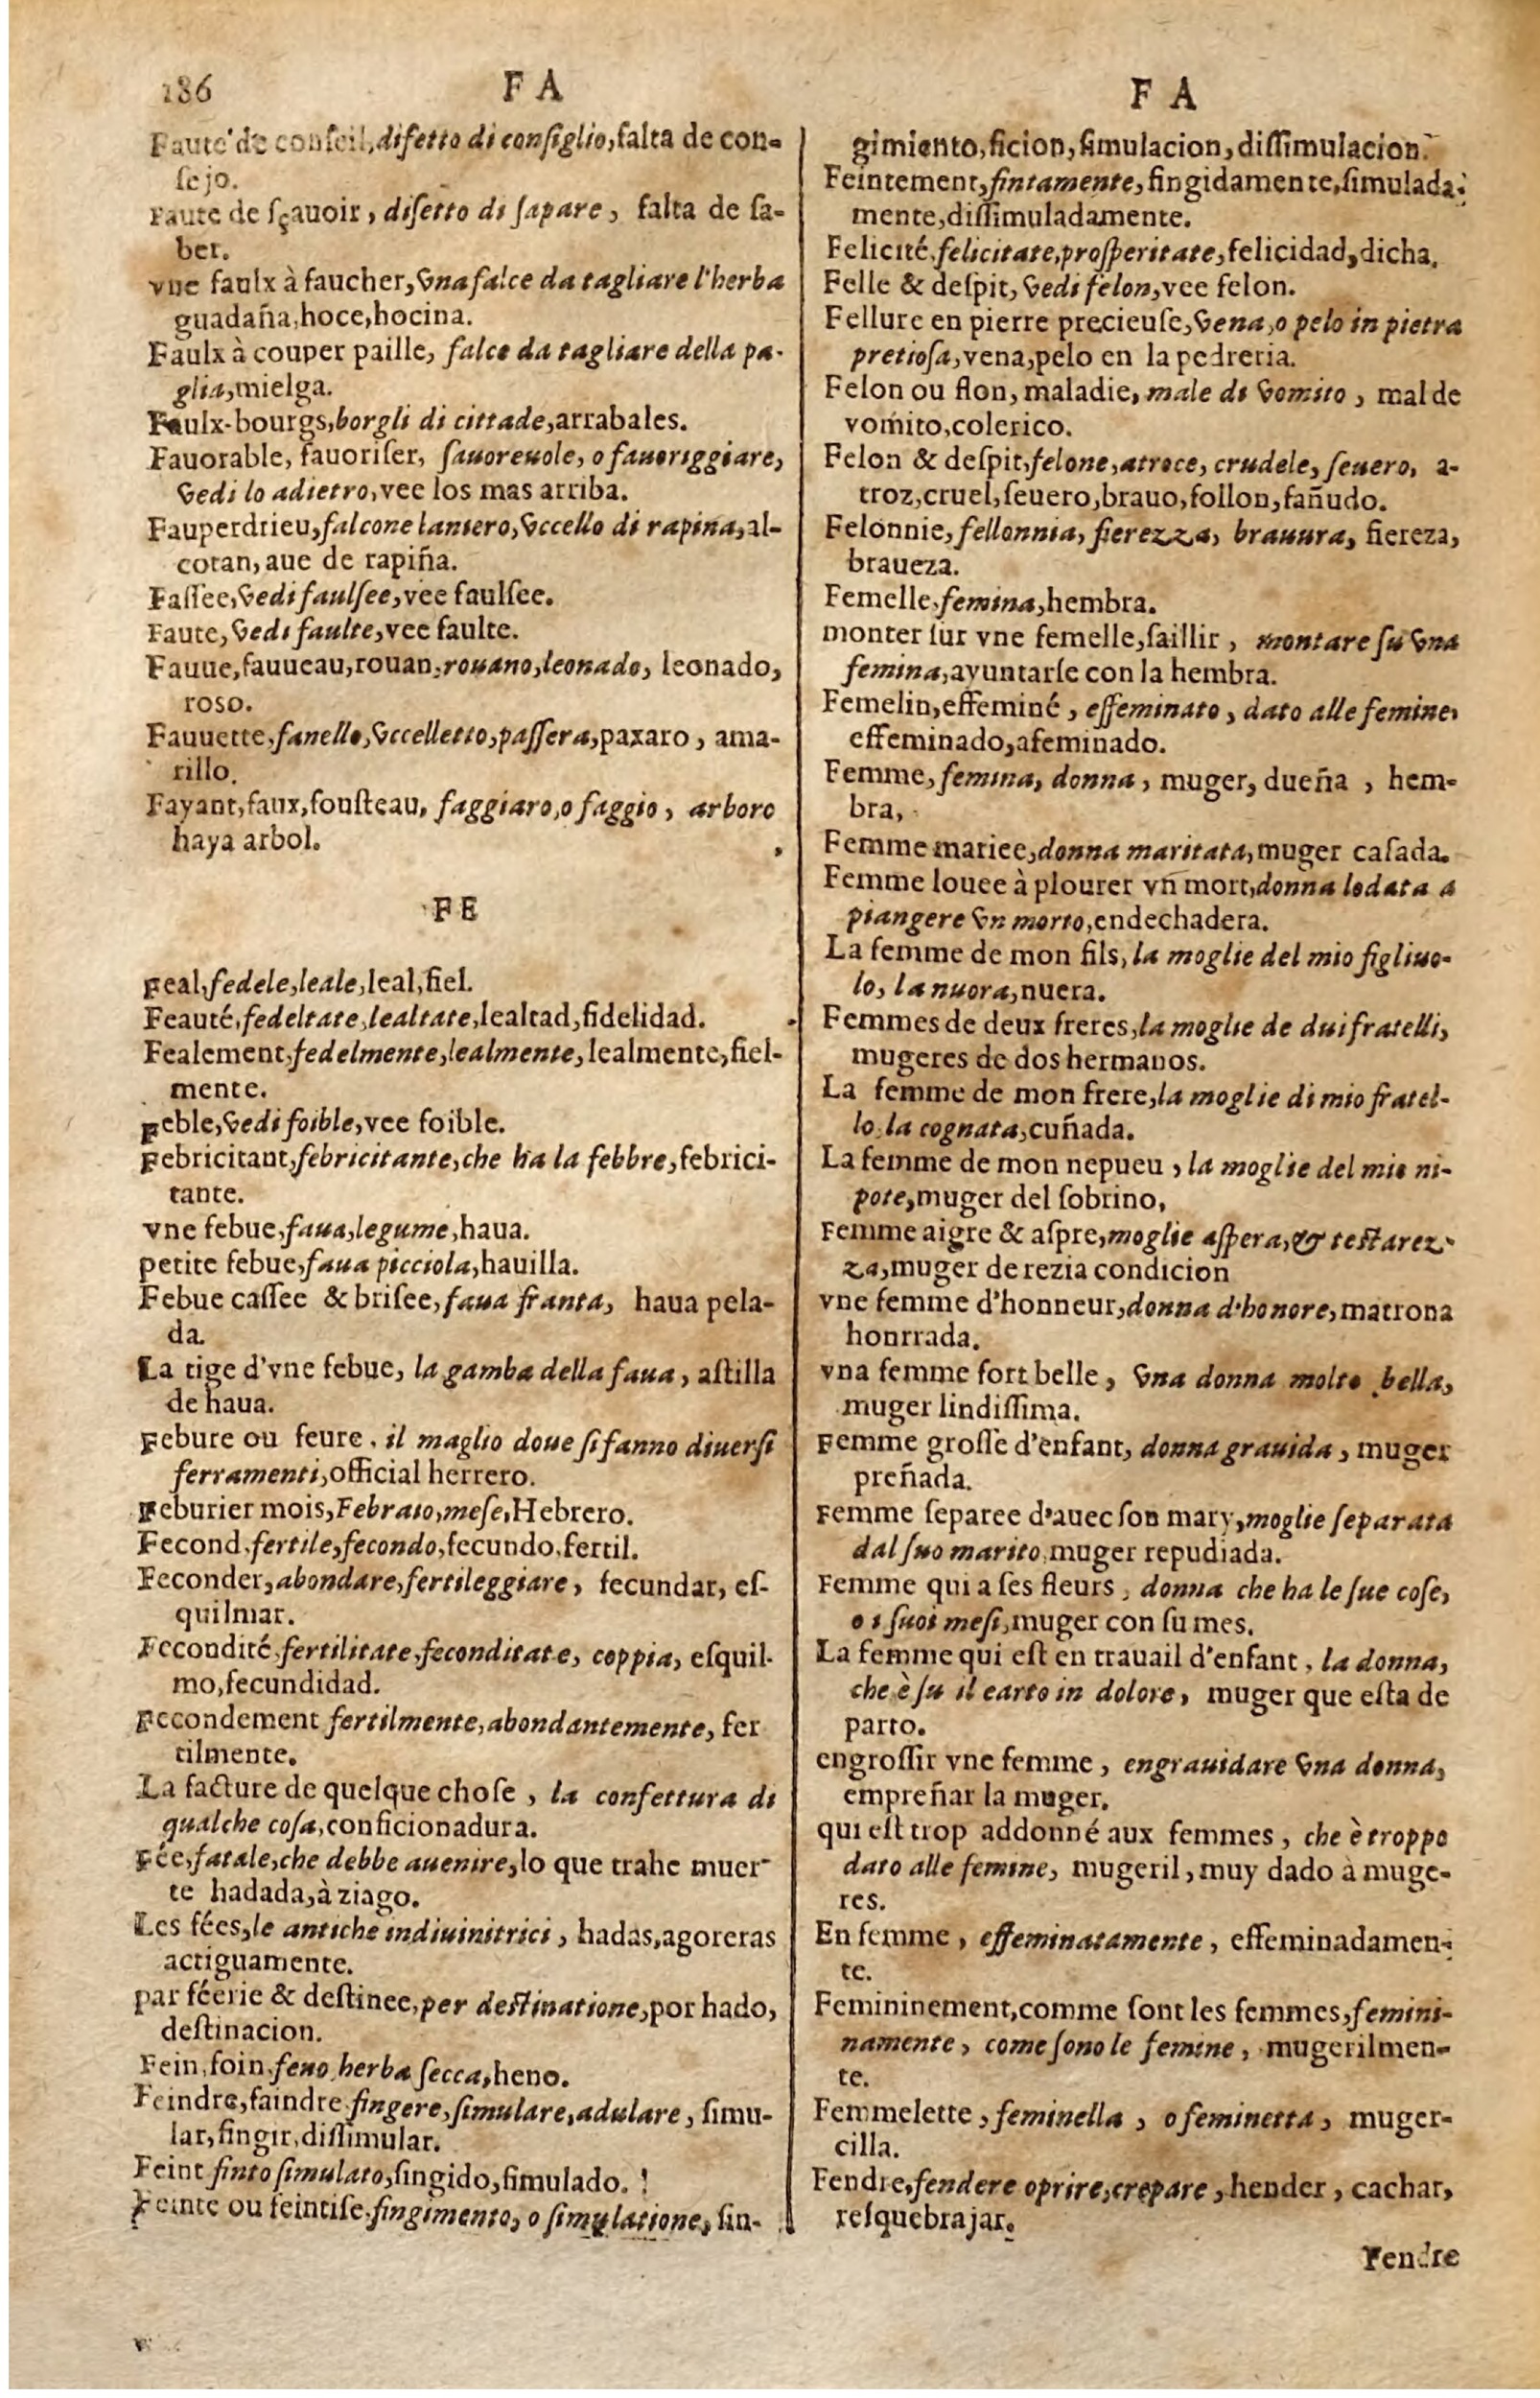 186
F A
Faute de conseil, difetto di consiglio, falta de con-
sejo.
Faute de sçauoir, disetto di sapare, falta de sa-
ber.
vne faulx à faucher, vna falce da tagliare l'herba
guadaña, hoce, hocina.
Faulx à couper paille, falce da tagliare della pa-
glia, mielga.
Faulx-bourgs, borgli di cittade, arrabales.
Fauorable, fauoriser, fauoreuole, o fauoriggiare,
vedi lo adietro, vee los mas arriba.
Fauperdrieu, falcone laniero, vccello di rapina, al-
cotan, aue de rapiña.
Fassee, vedi faulsee, vee faulsee.
Faute, vedi faulte, vee faulte.
Fauue, fauueau, rouan, rouano, leonado, leonado,
roso.
Fauuette, fanello, vccelletto, passera, paxaro, ama-
rillo.
Fayant, faux, fousteau, faggiaro, o faggio, arboro
haya arbol.
F E
Feal, fedele, leale, leal, fiel.
Feauté, fedeltate, lealtate, lealtad, fidelidad.
Fealement, fedelmente, lealmente, lealmente, fiel-
mente.
Feble, vedi foible, vee foible.
Febricitant, febricitante, che ha la febbre, febrici-
tante.
vne febue, faua, legume, haua.
petite febue, faua picciola, hauilla.
Febue cassee & brisee, faua franta, haua pela-
da.
La tige d'vne febue, la gamba della faua, astilla
de haua.
Febure ou feure, il maglio doue si fanno diuersi
ferramenti, official herrero.
Feburier mois, Febraio, mese, Hebrero.
Fecond, fertile, fecondo, fecundo, fertil.
Feconder, abondare, fertileggiare, fecundar, es-
quilmar.
Fecondité, fertilitate, feconditate, coppia, esquil-
mo, fecundidad.
Fecondement fertilmente, abondantemente, fer
tilmente.
La facture de quelque chose, la confettura di
qualche cosa, conficionadura.
Fée, fatale, che debbe auenire, lo que trahe muer-
te hadada, à ziago.
Les fées, le antiche indiuinitrici, hadas, agoreras
actiguamente.
par féerie & destinee, per destinatione, por hado,
destinacion.
Fein, foin, feno, herba secca, heno.
Feindre, faindre, fingere, simulare, adulare, simu-
lar, fingir, dissimular.
Feint finto simulato, fingido, simulado.
Feinte ou feintise, fingimento, o simulatione, fin-
F A
gimiento, ficion, simulacion, dissimulacion.
Feintement, fintamente, fingidamente, simulada-
mente, dissimuladamente.
Felicité, felicitate, prosperitate, felicidad, dicha.
Felle & despit, vedi felon, vee felon.
Fellure en pierre precieuse, vena, o pelo in pietra
pretiosa, vena, pelo en la pedreria.
Felon ou flon, maladie, male di vomito, mal de
vomito, colerico.
Felon & despit, felone, atroce, crudele, seuero, a-
troz, cruel, seuero, brauo, follon, sañudo.
Felonnie, fellonnia, fierezza, brauura, fiereza,
braueza.
Femelle, femina, hembra.
monter sur vne femelle, saillir, montare su vna
femina, ayuntarse con la hembra.
Femelin, effeminé, effeminato, dato alle femine,
effeminado, afeminado.
Femme, femina, donna, muger, dueña, hem-
bra,
Femme mariee, donna maritata, muger casada.
Femme louee à plourer vn mort, donna lodata a
piangere vn morto, endechadera.
La femme de mon fils, la moglie del mio figliuo-
lo, la nuora, nuera.
Femmes de deux freres, la moglie de dui fratelli,
mugeres de dos hermanos.
La femme de mon frere, la moglie di mio fratel-
lo, la cognata, cuñada.
La femme de mon nepueu, la moglie del mio ni-
pote, muger del sobrino,
Femme aigre & aspre, moglie aspera, & testarez-
za, muger de rezia condicion
vne femme d'honneur, donna d'honore, matrona
honrrada.
vna femme fort belle, vna donna molto bella,
muger lindissima.
Femme grosse d'enfant, donna grauida, muger
preñada.
Femme separee d'auec son mary, moglie separata
dal suo marito, muger repudiada.
Femme qui a ses fleurs, donna che ha le sue cose,
o i suoi mesi, muger con su mes.
La femme qui est en trauail d'enfant, la donna,
che è su il earto in dolore, muger que esta de
parto.
engrossir vne femme, engrauidare vna donna,
empreñar la muger.
qui est trop addonné aux femmes, che è troppo
dato alle femine, mugeril, muy dado à muge-
res.
En femme, effeminatamente, effeminadamen-
te.
Femininement, comme sont les femmes, femini-
namente, come sono le femine, mugerilmen-
te.
Femmelette, feminella, o feminetta, muger-
cilla.
Fendre, fendere oprire, crepare, hender, cachar,
resquebrajar.
Fendre